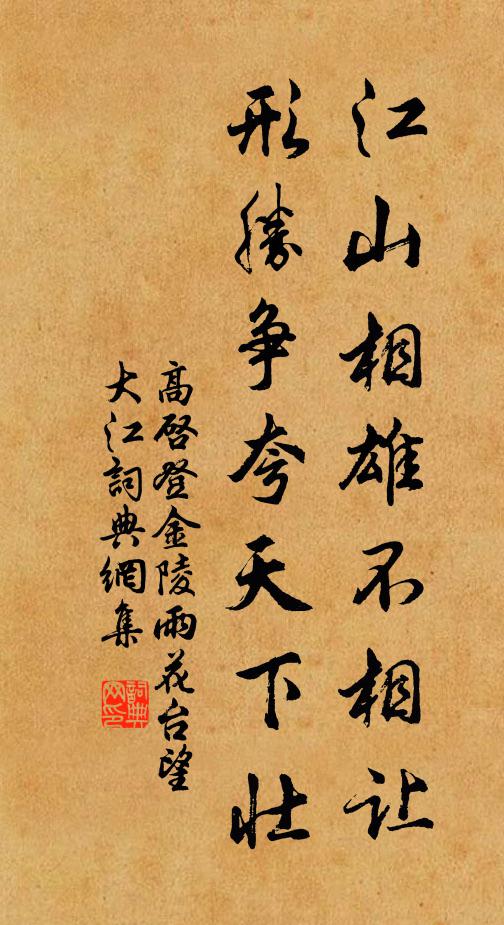 江山相雄不相让
形勝争夸天下壮
高啓登金陵雨花台望
大江詞典網集
詞典
网印